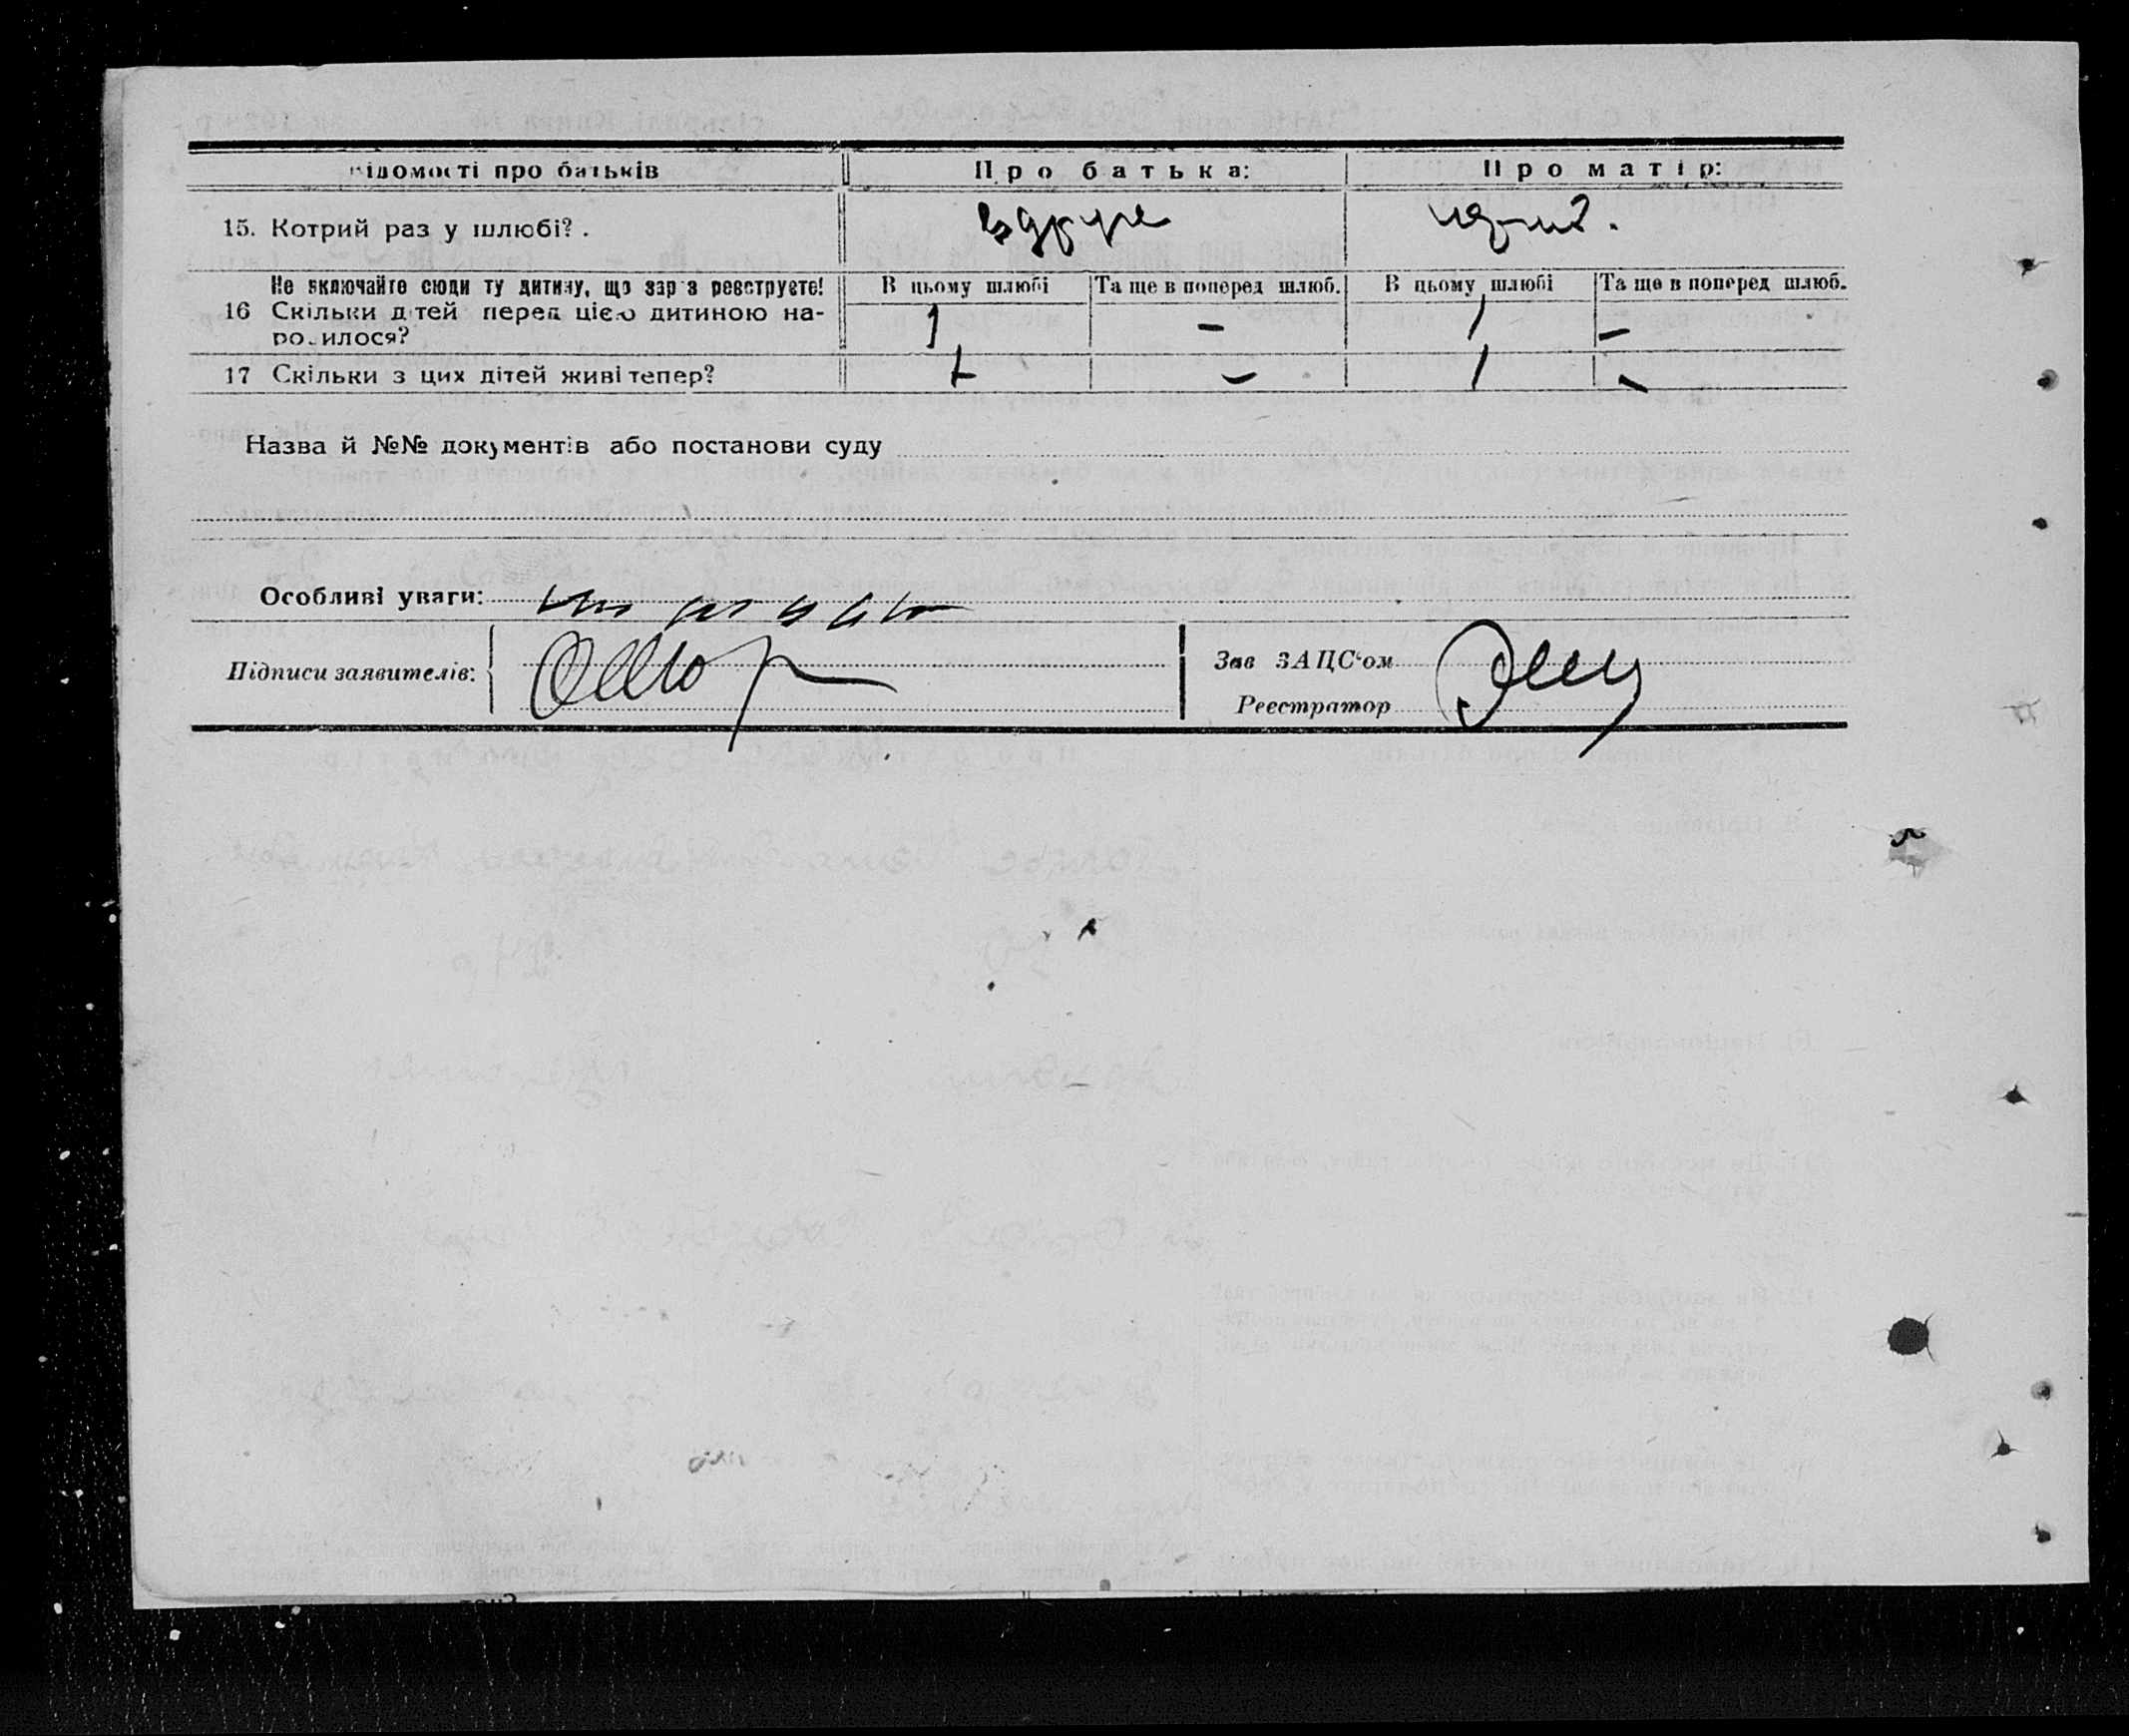 відомості про батьків Про батька: Про матір:
15. Котрий раз у шлюбі? . вдруге
Не включайте сюди ту дитину, що зар з реєструєте! В цьому шлюбі Та ще в поперед шлюб. В цьому шлюбі Та ще в поперед шлюб.
16 Скільки дітей перед цією дитиною на-
родилося? 1 – 1 –
17 Скільки з цих дітей живі тепер? 1 – 1 –
Назва й №№ документів або постанови суду
Особливі уваги:
Підписи заявителів:
Зав ЗАЦС'ом
Реєстратор